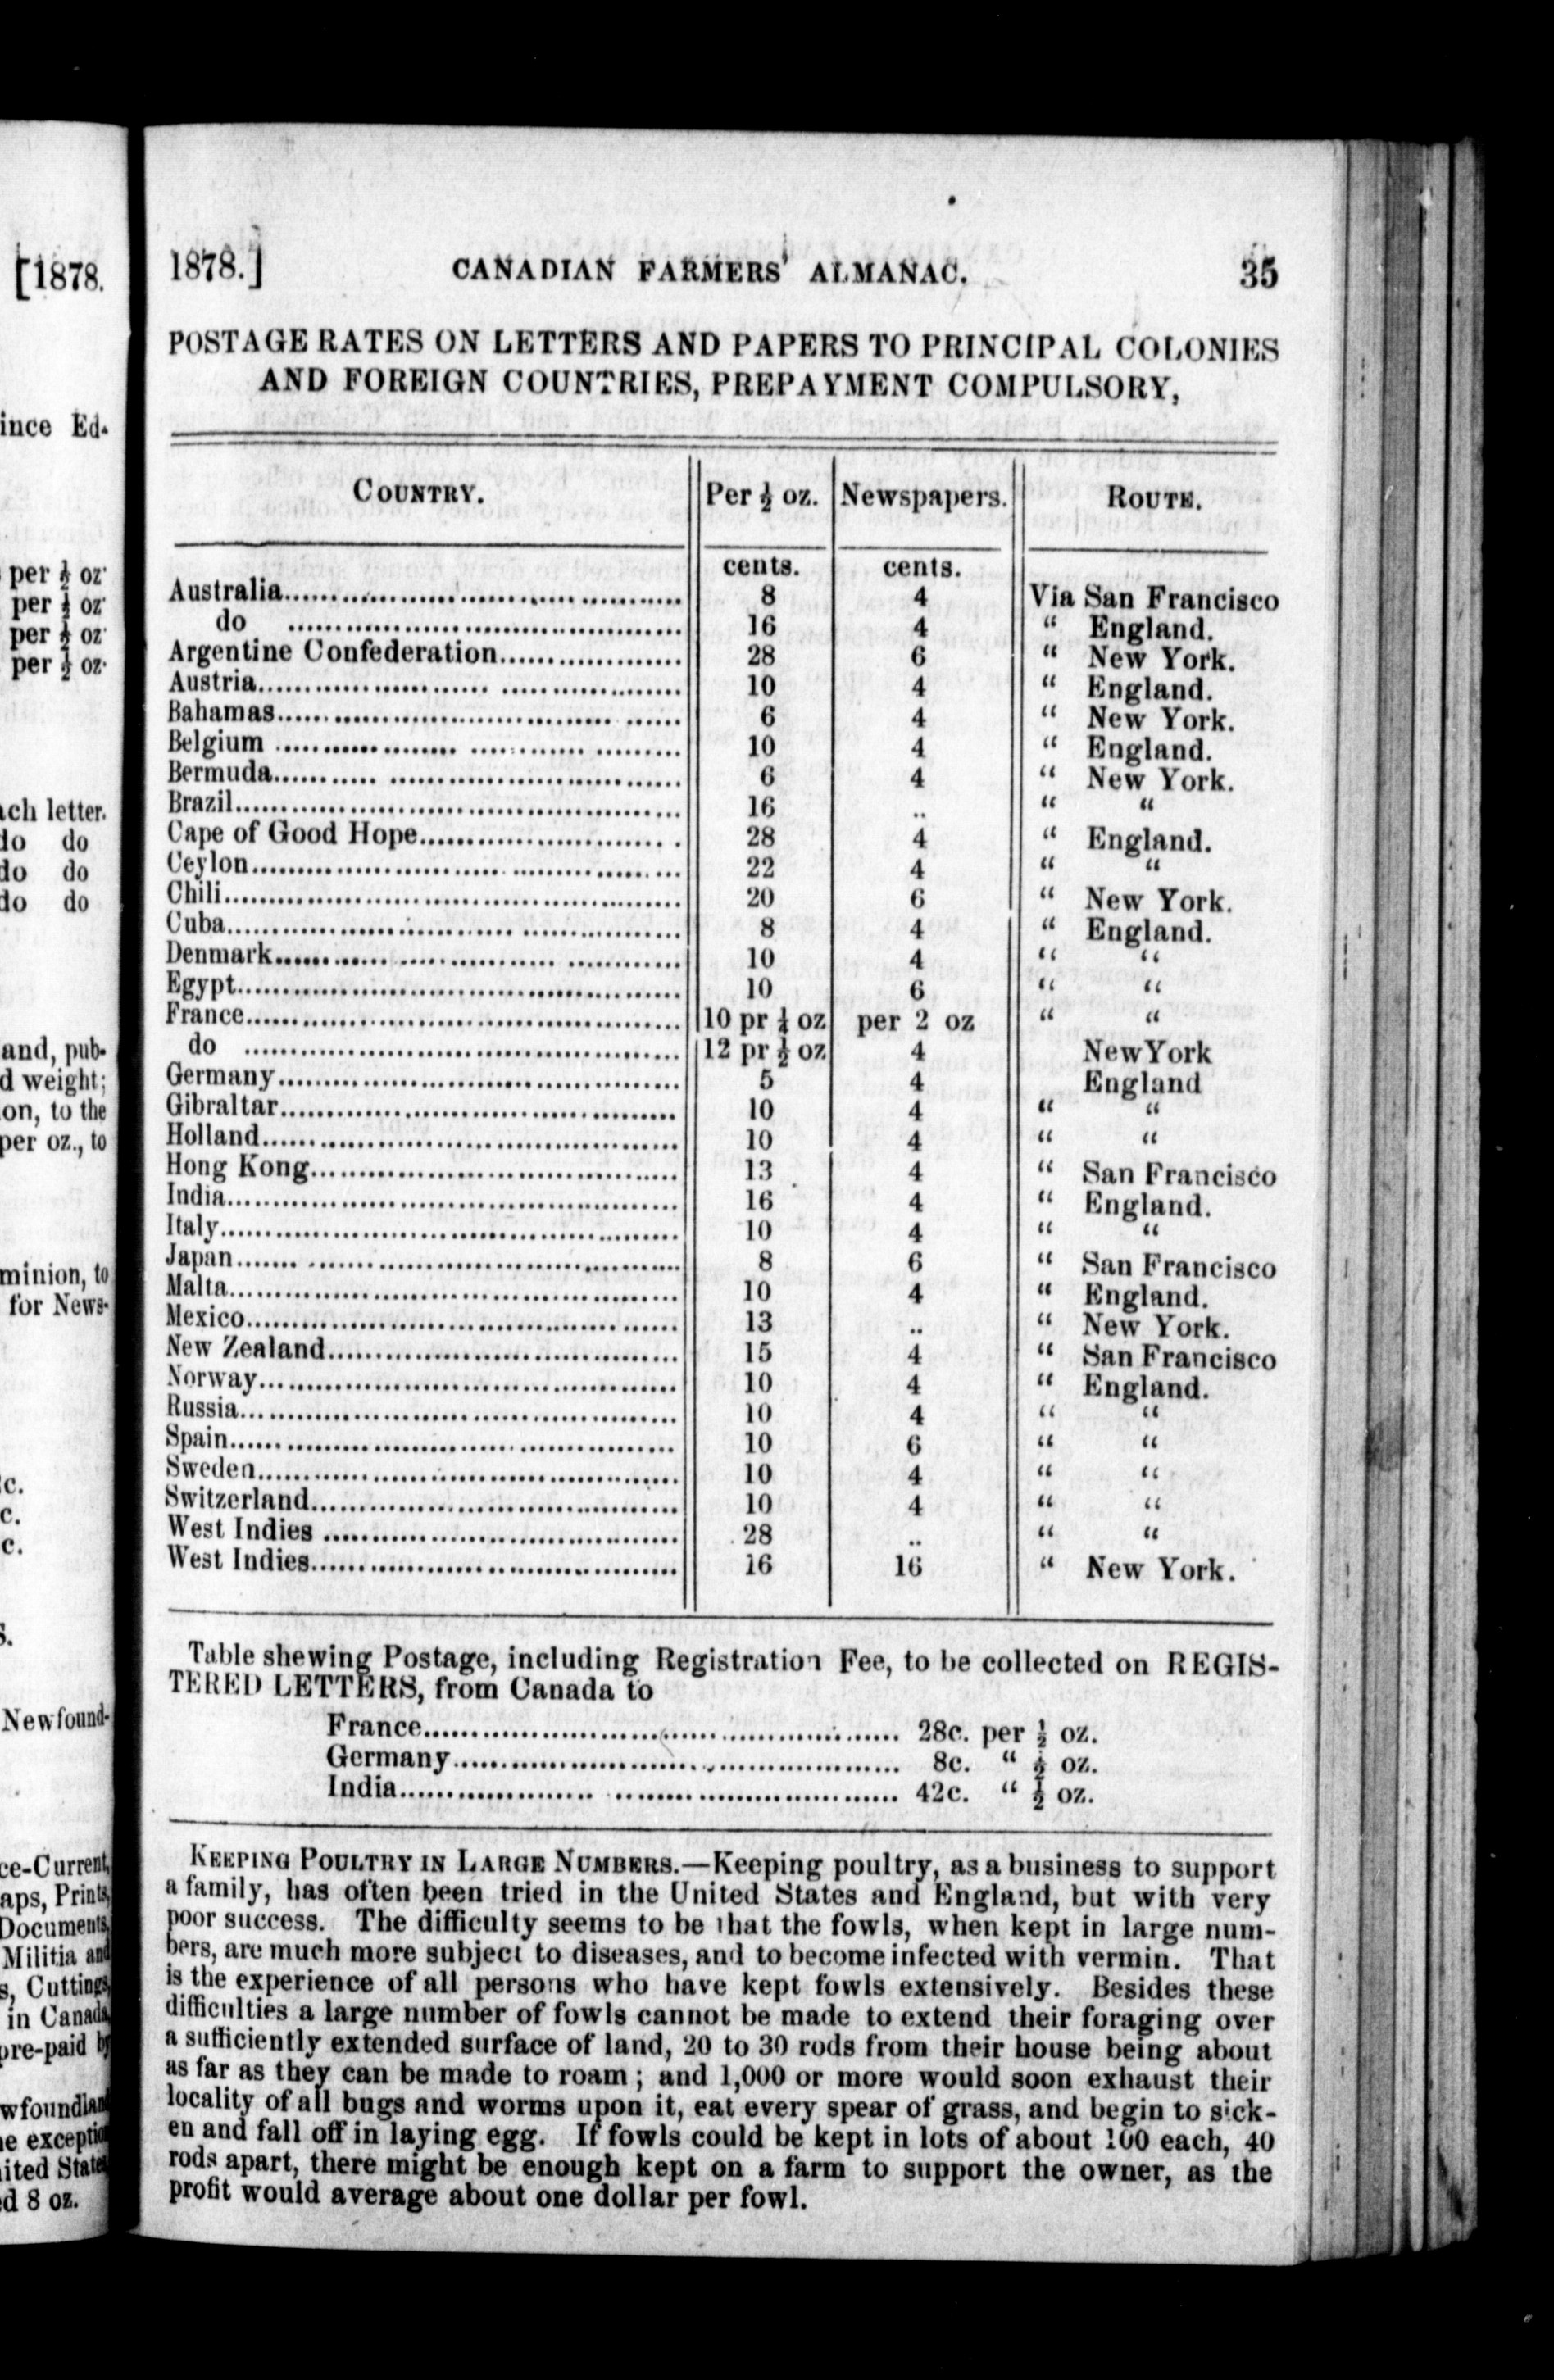 [1878.
ince Ed-
per ½ oz
per ½ oz
per ½ oz
per ½ oz.
ach letter.
do do
do do
do do
and, pub-
d weight;
on, to the
per oz., to
minion, to
for News-
c.
c.
c.
s.
Newfound-
ce-Current,
aps, Prints,
Documents,
Militia and
s, Cuttings,
in Canada,
pre-paid by
wfoundland
he exception
ited States
d 8 oz.
1878.] CANADIAN FARMERS' ALMANAC. 35
POSTAGE RATES ON LETTERS AND PAPERS TO PRINCIPAL COLONIES
AND FOREIGN COUNTRIES, PREPAYMENT COMPULSORY,
COUNTRY. Per ½ oz. Newspapers. ROUTE.
cents. cents.
Australia........ 8 4 Via San Francisco
do ........ 16 4 “ England.
Argentine Confederation........ 28 6 “ New York.
Austria........ 10 4 “ England.
Bahamas........ 6 4 “ New York.
Belgium ........ 10 4 “ England.
Bermuda........ 6 4 “ New York.
Brazil........ 16 .. “ “
Cape of Good Hope........ 28 4 “ England.
Ceylon........ 22 4 “ “
Chili........ 20 6 “ New York.
Cuba........ 8 4 “ England.
Denmark........ 10 4 “ “
Egypt........ 10 6 “ “
France........ 10 pr ¼ oz per 2 oz “ “
do ........ 12 pr ½ oz 4 NewYork
Germany........ 5 4 England
Gibraltar........ 10 4 “ “
Holland........ 10 4 “ “
Hong Kong........ 13 4 “ San Francisco
India........ 16 4 “ England.
Italy........ 10 4 “ “
Japan........ 8 6 “ San Francisco
Malta........ 10 4 “ England.
Mexico........ 13 .. “ New York.
New Zealand........ 15 4 “ San Francisco
Norway........ 10 4 “ England.
Russia........ 10 4 “ “
Spain........ 10 6 “ “
Sweden........ 10 4 “ “
Switzerland........ 10 4 “ “
West Indies ........ 28 .. “ “
West Indies........ 16 16 “ New York.
Table shewing Postage, including Registration Fee, to be collected on REGIS-
TERED LETTERS, from Canada to
France........ 28c. per ½ oz.
Germany........ 8c. “ ½ oz.
India........ 42c. “ ½ oz.
KEEPING POULTRY IN LARGE NUMBERS.—Keeping poultry, as a business to support
a family, has often been tried in the United States and England, but with very
poor success. The difficulty seems to be that the fowls, when kept in large num-
bers, are much more subject to diseases, and to become infected with vermin. That
is the experience of all persons who have kept fowls extensively. Besides these
difficulties a large number of fowls cannot be made to extend their foraging over
a sufficiently extended surface of land, 20 to 30 rods from their house being about
as far as they can be made to roam; and 1,000 or more would soon exhaust their
locality of all bugs and worms upon it, eat every spear of grass, and begin to sick-
en and fall off in laying egg. If fowls could be kept in lots of about 100 each, 40
rods apart, there might be enough kept on a farm to support the owner, as the
profit would average about one dollar per fowl.